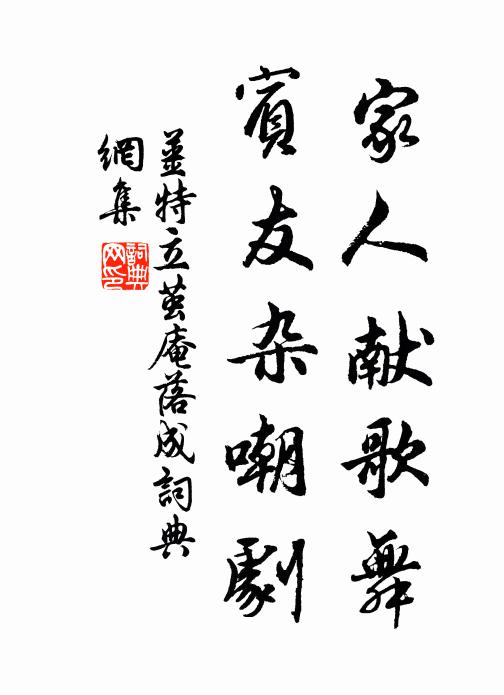 家人献歌舞
賓友杂嘲劇
姜特立茧庵落成詞典
網集
詞典
网印